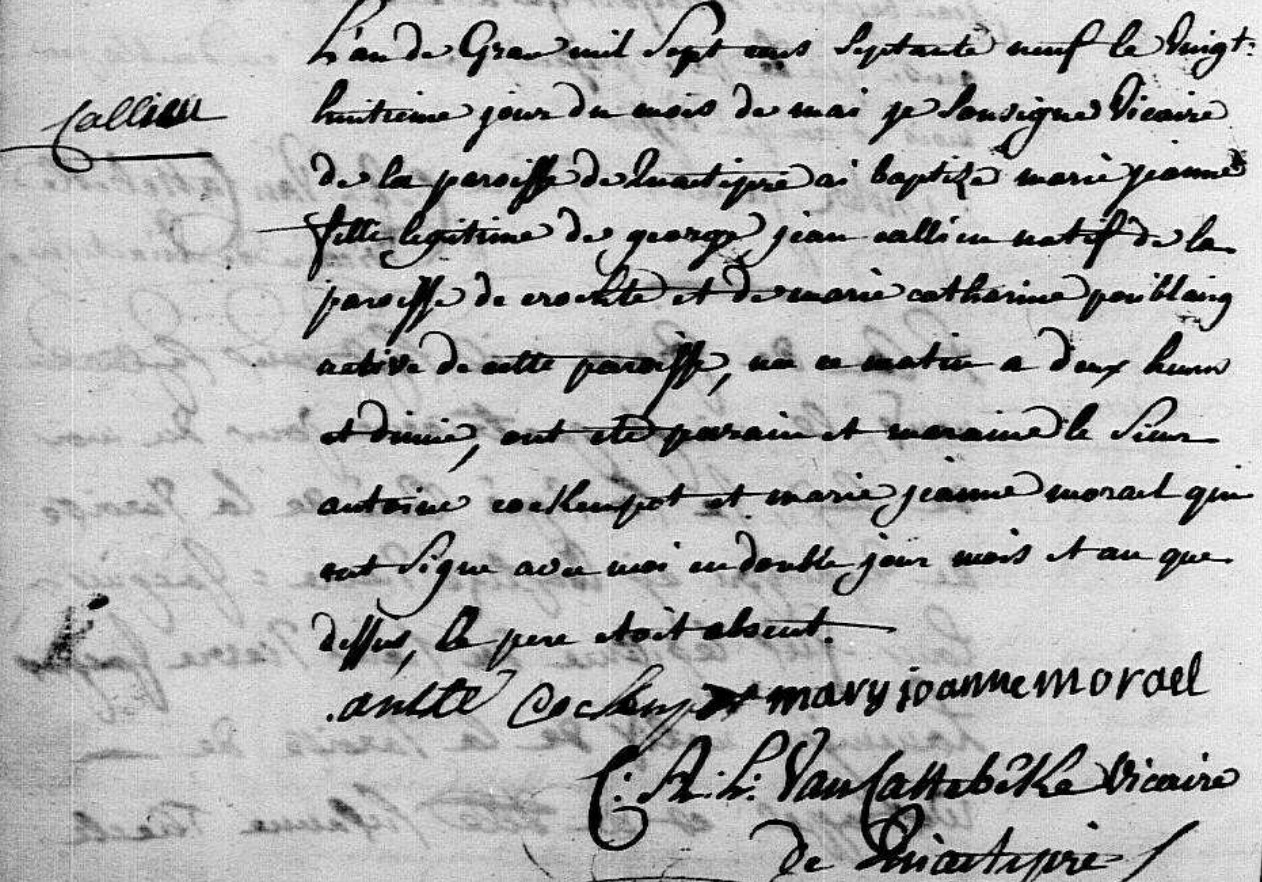 L'an de Grace mil Sept cens Septante neuf le vingt-
Callieu
huitieme jour du mois de mai je Sousigné Vicaire
de la paroisse de Quaetipre ai baptizé marie jeanne
fille legitime de george jean callieu natif de la
paroisse de crochte et de marie catharine poublang
native de cette paroisse, née ce matin a deux heures
et dimie, ont eté parain et maraine le Sieur
antoine cockenpot et marie jeanne morael qui
ont Signe avec moi en double jour mois et an que
dessus, le pere etoit absent.
Cockenpot mary joanne morael
C: L: Van Cattebêke Vicaire
de Quaetipre